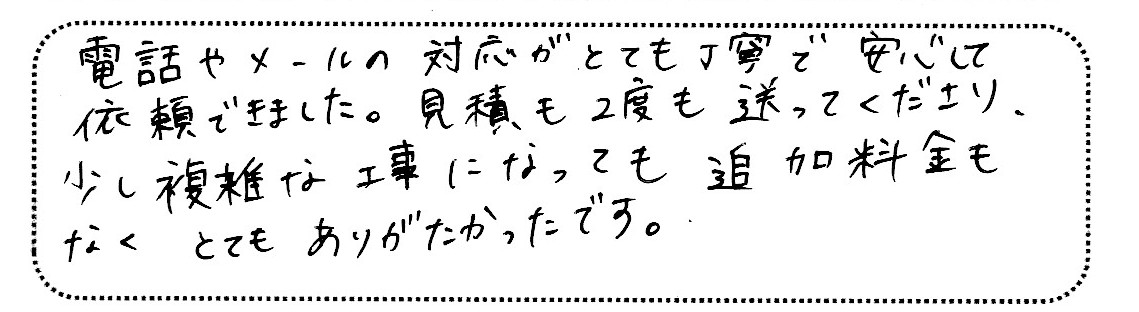 電話やメールの対応がとても丁寧で安心して
依頼できました。見積も2度も送ってくださり、
少し複雑な工事になっても追加料金も
なくとてもありがたかったです。